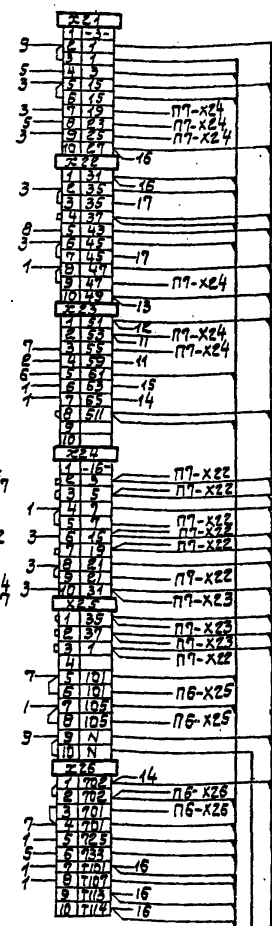 X21
1 -3-
9 2 1
3 1
5 4 3
3 5 15
6 15
3 7 19 П7-X24
5 8 23 П7-X24
3 9 25 П7-X24
10 27
X22 16
1 31
3 2 35 16
3 35 17
4 37
8 5 43
3 6 45
7 45 17
1 8 47
9 47 П7-X24
10 49
X23 13
1 51 12
2 53 П7-X24
11
7 3 55 П7-X24
2 4 59 11
6 5 61
1 6 63 15
1 7 65 14
8 511
9
10
X24
1 -16-
2 3 П7-X22
3 5 П7-X22
1 4 7
5 7 П7-X22
3 6 15 П7-X22
7 19 П7-X22
3 8 21
9 21 П7-X22
3 10 31
X25 П7-X23
1 35
2 37 П7-X23
3 1 П7-X23
4 П7-X22
7 5 101
6 101 П6-X25
1 7 105
8 105 П6-X25
9 9 N
10 N
X26
1 702 14
2 702 П6-X26
3 701 П6-X26
7 4 701
1 5 725
5 6 733
1 7 T101 16
1 8 T107
9 T113 16
10 T114 16